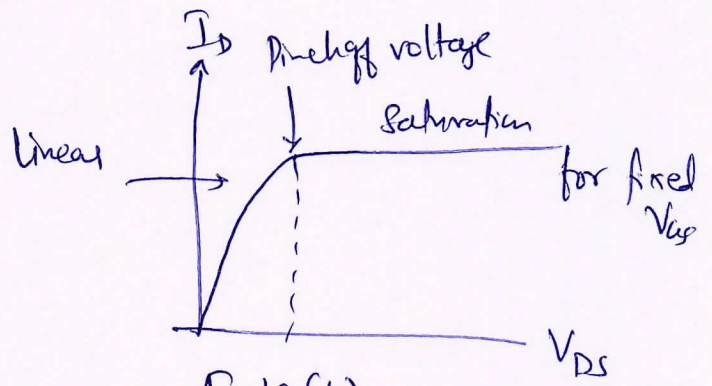 I_D
Pinchoff voltage
Saturation
Linear
for fixed
V_GS
V_DS